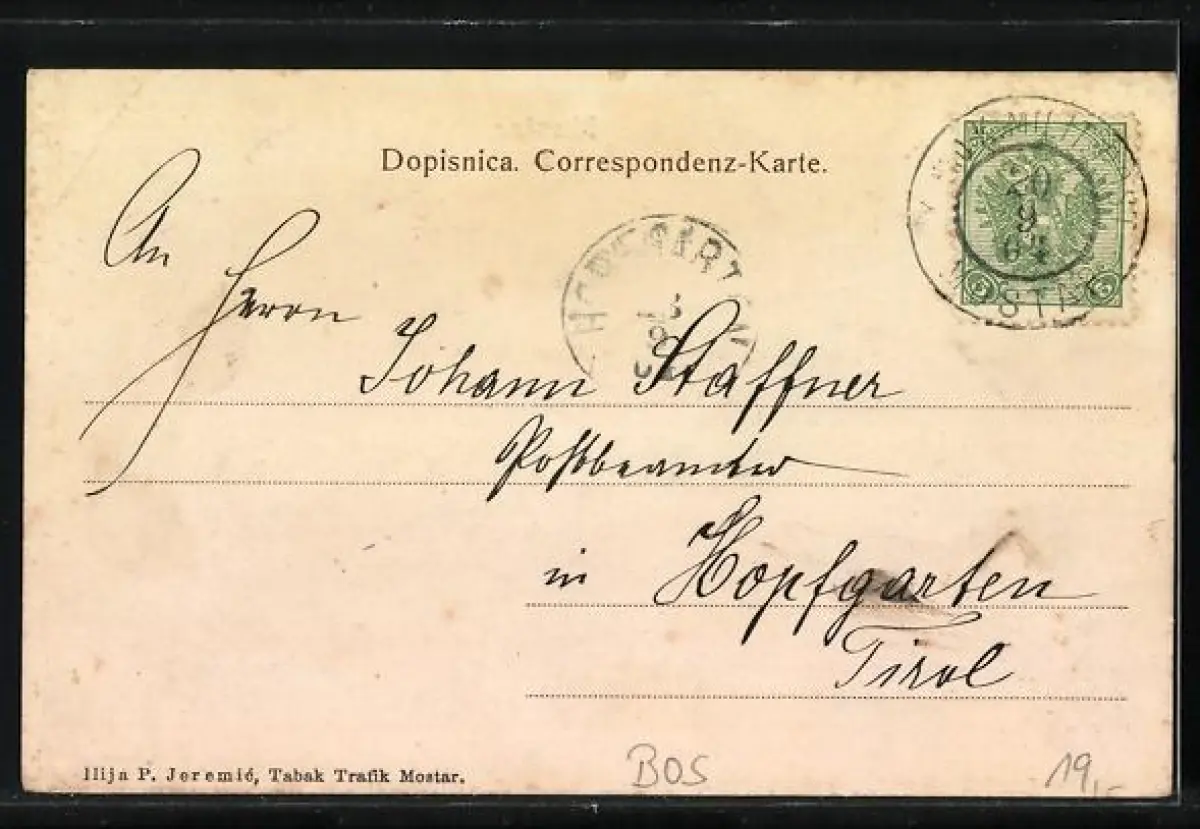 Dopisnica. Correspondenz-Karte.
20
9
04
5 5
An
Herrn
Johann Staffner
Postbeamter
in Hopfgarten
Tirol
Ilija P. Jeremić, Tabak Trafik Mostar.
BOS
19,-